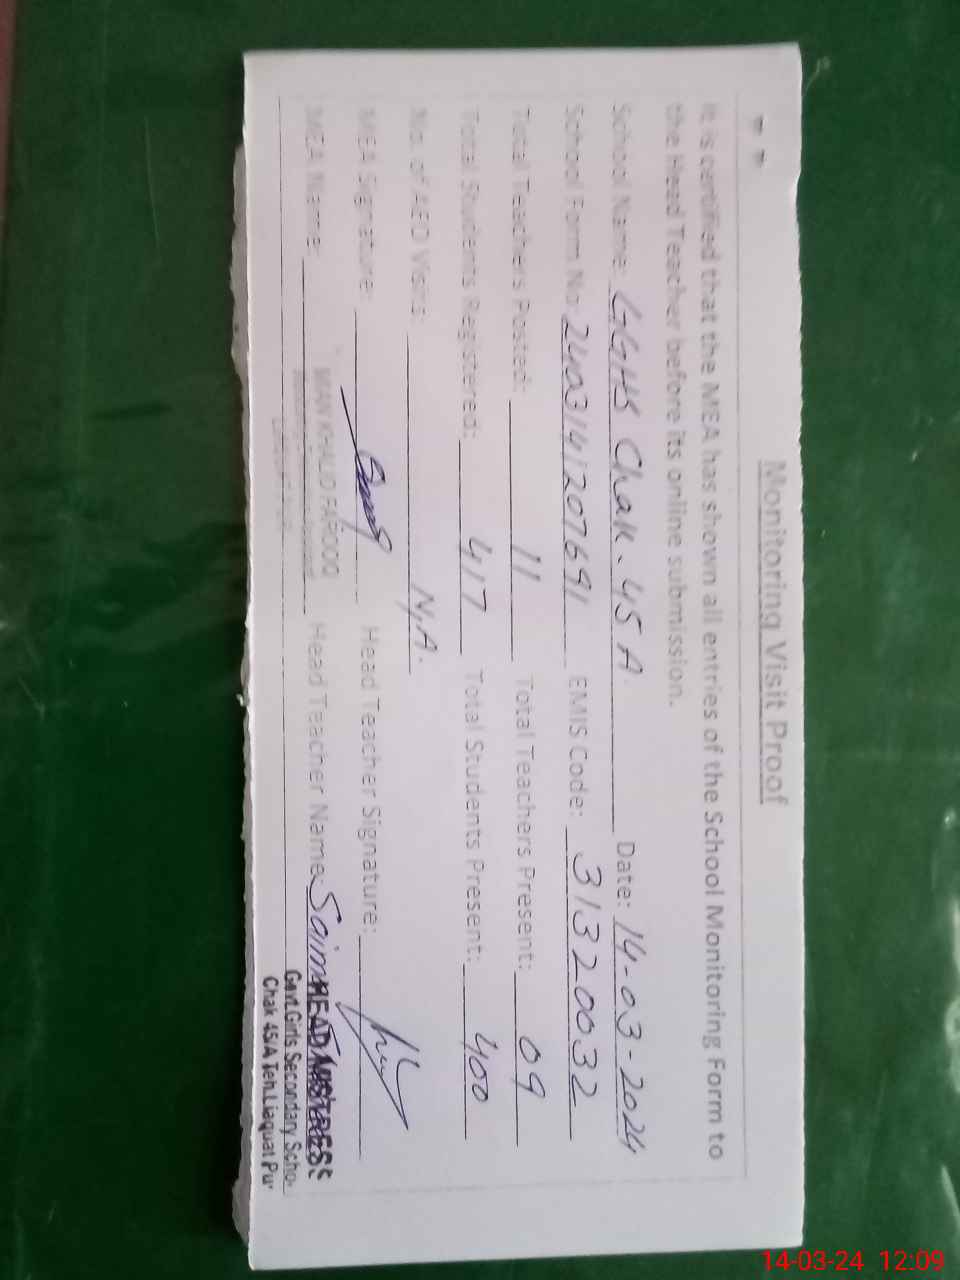 Monitoring Visit Proof
It is certified that the MEA has shown all entries of the School Monitoring Form to
the Head Teacher before its online submission.
School Name: GGHS Chak. 45 A Date: 14-03-2024
School Form No: 2403141207691 EMIS Code: 31320032
Total Teachers Posted: 11 Total Teachers Present: 09
Total Students Registered: 417 Total Students Present: 400
No. of AEO Visits: N.A.
MEA Signature: Head Teacher Signature:
MEA Name: MIAN KHALID FAROOQ Head Teacher Name: Saima
HEAD MISTRESS
Govt.Girls Secondary Scho
Chak 45/A Teh.Liaquat Pu
14-03-24 12:09